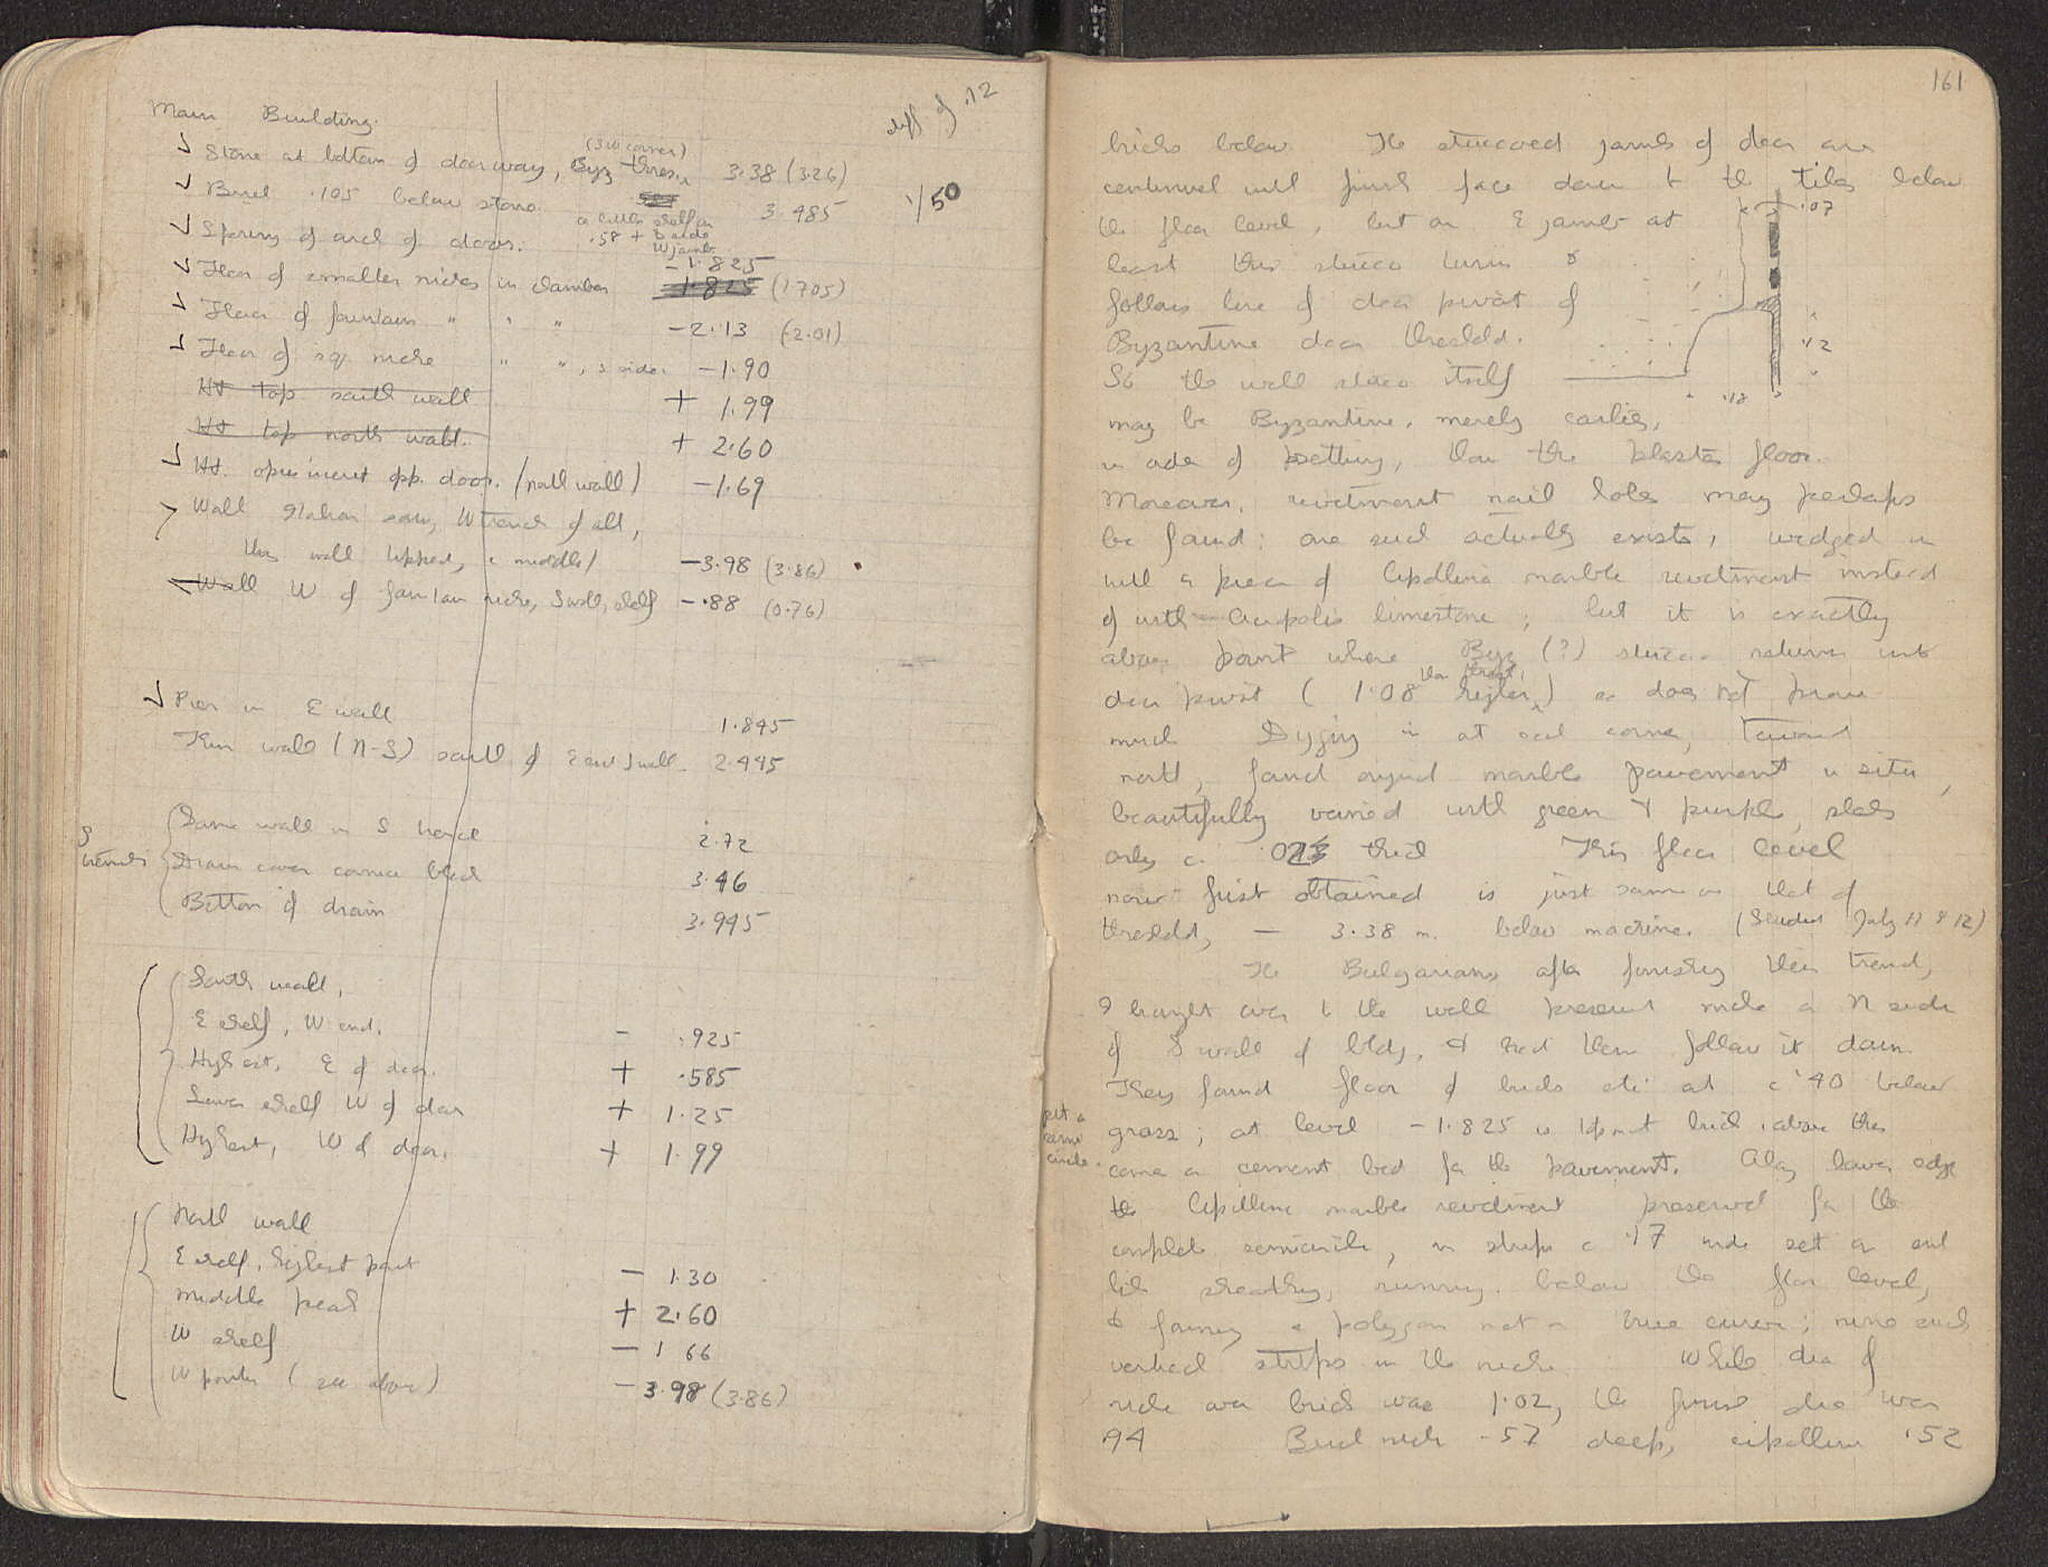 Main Building.
diff of .12
(SW corner)
Stone at bottom of doorway, Byz thres. 3.38 (3.26)
Brick .105 below stone 3.485
1/50
Spring of arch of door. a little shelf on .58 + S side W jamb
Floor of smaller niches in chamber -1.825 (1.705)
Floor of fountain " " " -2.13 (-2.01)
Floor of sq. niche " ", S side -1.90
Ht top south wall + 1.99
Ht top north wall. + 2.60
Ht. opp. door. (north wall) -1.69
Wall W trench of all,
this wall tipped, c middle) -3.98 (3.86)
Wall W of fountain niche, S wall, shelf -.88 (0.76)
Pier in E wall 1.895
Thin wall (N-S) south of E end S wall. 2.445
S trench
Same wall in S trench 2.72
Drain cover cornice block 3.46
Bottom of drain 3.995
South wall,
E shelf, W end. - .925
Highest, E of door. + .585
Lower shelf W of door + 1.25
Highest, W of door. + 1.99
North wall
E shelf, highest part - 1.30
Middle peak + 2.60
W shelf - 1 66
W (see above) - 3.98 (3.86)
161
bricks below. The stuccoed jambs of door are
continued with finish face down to the tiles below
the floor level, but on E jamb at
least this stucco turns &
follows line of door pivot of
Byzantine door threshold.
So the wall stucco itself
may be Byzantine, merely earlier,
in order of putting, than the plaster floor.
.07
.12
.18
Moreover, revetment nail holes may perhaps
be found: one such actually exists, wedged in
with a piece of Cipollino marble revetment instead
of with Acropolis limestone; but it is exactly
above point where Byz (?) stucco returns into
door pivot (1.08 higher than thresh.) so does not prove
much Digging in at east corner, toward
north, found original marble pavement in situ,
beautifully veined with green & purple, slabs
only c. .02 thick This floor level
now first obtained is just same as that of
threshold, - 3.38 m. below machine. (Student July 11 & 12)
The Bulgarians, after finishing their trench,
I brought over to the well preserved niche on N side
of S wall of bldg, & had them follow it down.
They found floor of bricks etc at c .40 below
grass; at level - 1.825 is topmost brick, above this
came a cement bed for the pavement. Along lower edge
not a semi circle.
the Cipollino marble revetment preserved for the
complete semicircle, in strips c .17 wide set on end
like sheathing, running below the floor level,
& forming a polygon not a true curve; nine such
vertical strips in the niche. While dia of
niche over brick was 1.02, the finish dia was
.94 Brick niche .57 deep, cipollino .52